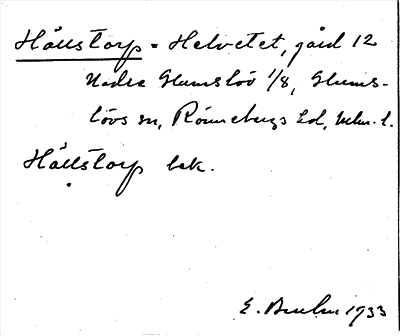 Hällstorp = Helvetet, gård 12
Nedre Glumslöv 1/8, Glums-
lövs sn, Rönnebergs hd, Mlm. l.
Hällstorp bek.
E. 1933